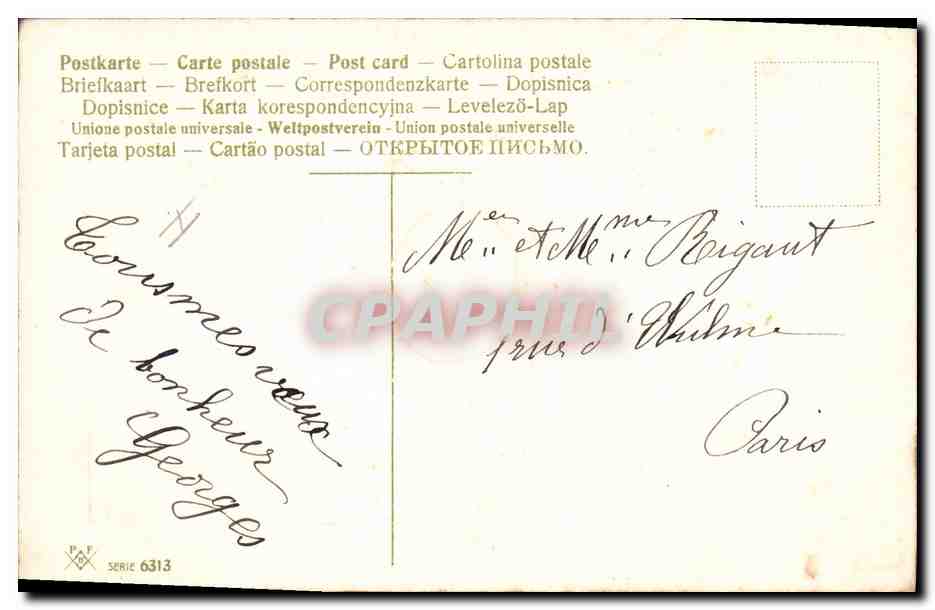 Postkarte — Carte postale — Post card — Cartolina postale
Briefkaart — Brefkort — Correspondenzkarte — Dopisnica
Dopisnice — Karta korespondencyjna — Levelező-Lap
Unione postale universale - Weltpostverein - Union postale universelle
Tarjeta postal — Cartão postal — ОТКРЫТОЕ ПИСЬМО.
Tous mes vœux
De bonheur
Georges
Mr et Mme Rigaut
rue d'Ulm
Paris
CPAPHIL
P F B
SERIE 6313